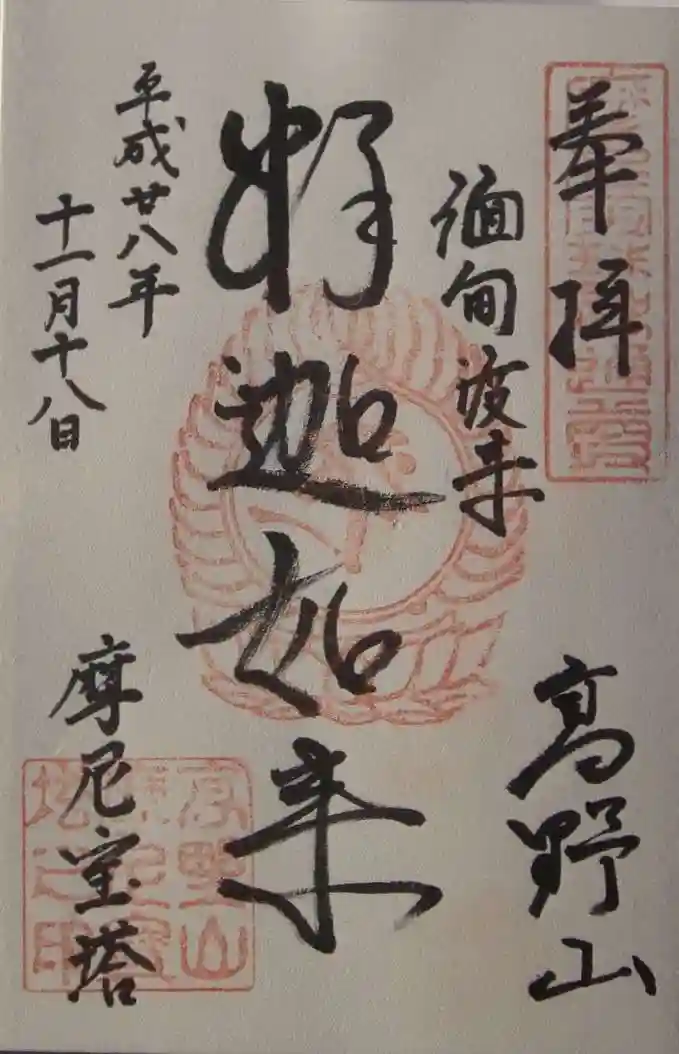 奉拝
高野山
緬甸渡来
釈迦如来
平成廿八年
十一月十八日
摩尼宝塔